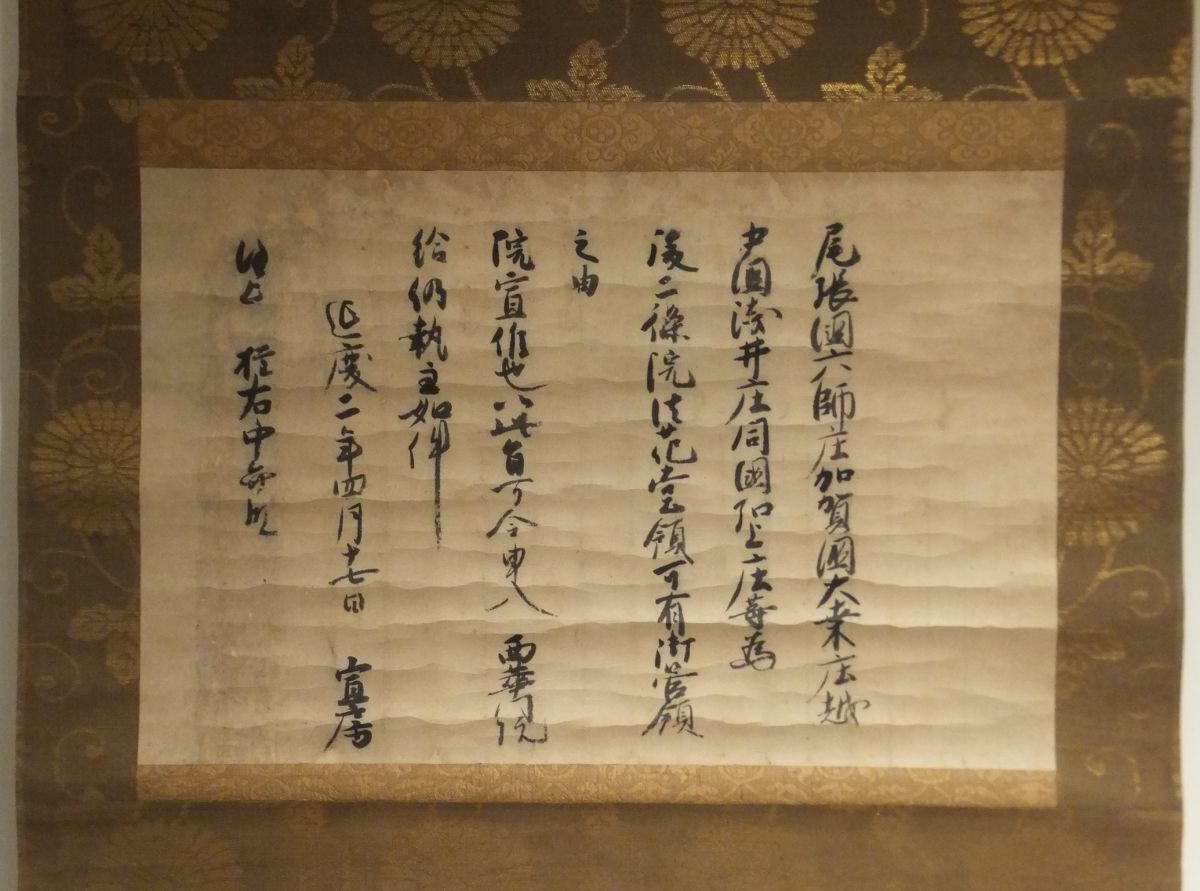 尾張國六師庄加賀國大桒庄越
中國浅井庄同國石上庄等為
後二條院法花堂領可有御管領
之由
院宣候也以此旨可令申入 西華門院
給仍執達如件
延慶二年四月十七日 宣房
進上 権右中弁殿